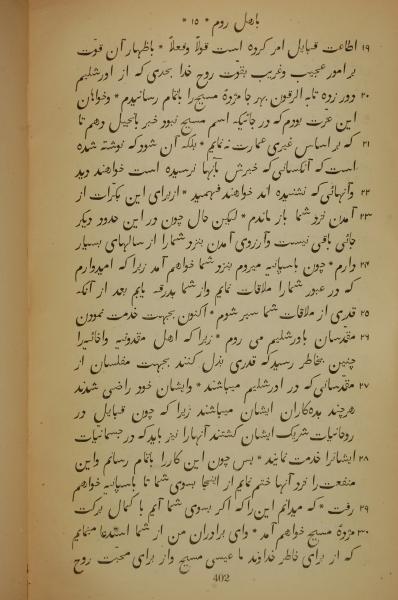 باهل روم * ١٥ *
١٩ اطاعت قبایل امر کرده است قولاً وفعلاً * باظهار آن قوّت
بر امور عجیب وغریب بقوّت روح خدا بحدّی که از اورشلیم
٢٠ دور زده تابه الرقون بهر جا مژدهٔ مسیح را باتمام رسانیدم * وخواهان
این عزّت بودم که در جائیکه اسم مسیح نبود خبر بانجیل دهم تا
٢١ که بر اساس غیری عمارت نه نمایم * بلکه آن شود که نوشته شده
است که آنکسانی که خبرش بآنها نرسیده است خواهند دید
٢٢ وآنهائی که نشنیده اند خواهند فهمید * ازبرای این بکرّات از
٢٣ آمدن نزد شما باز ماندم * لیکن حال چون در این حدود دیگر
جائی باقی نیست وآرزوی آمدن بنزد شما را از سالهای بسیار
٢٤ دارم * چون باسپانیه میروم بنزد شما خواهم آمد زیرا که امیدوارم
که در عبور شما را ملاقات نمایم واز شما بدرقه یابم بعد از آنکه
٢٥ قدری از ملاقات شما سیر شوم * اکنون بجهت خدمت نمودن
٢٦ مقدّسان باورشلیم می روم * زیرا که اهل مقدونیه واخائیه را
چنین بخاطر رسید که قدری بذل کنند بجهت مفلسان از
٢٧ مقدّسانی که در اورشلیم میباشند * وایشان خود راضی شدند
هرچند بدهکاران ایشان میباشند زیرا که چون قبایل در
روحانیات شریک ایشان گشتند آنها را نیز باید که در جسمانیات
٢٨ ایشانرا خدمت نمایند * پس چون این کار را باتمام رسانم واین
منفعت را نزد آنها ختم نمایم از اینجا بسوی شما تا باسپانیه خواهم
٢٩ رفت * که میدانم این را که اکر بسوی شما آیم با کمال برکت
٣٠ مژدهٔ مسیح خواهم آمد * وای برادران من از شما استدعا مینمایم
که از برای خاطر خداوند ما عیسی مسیح واز برای محبّت روح
402